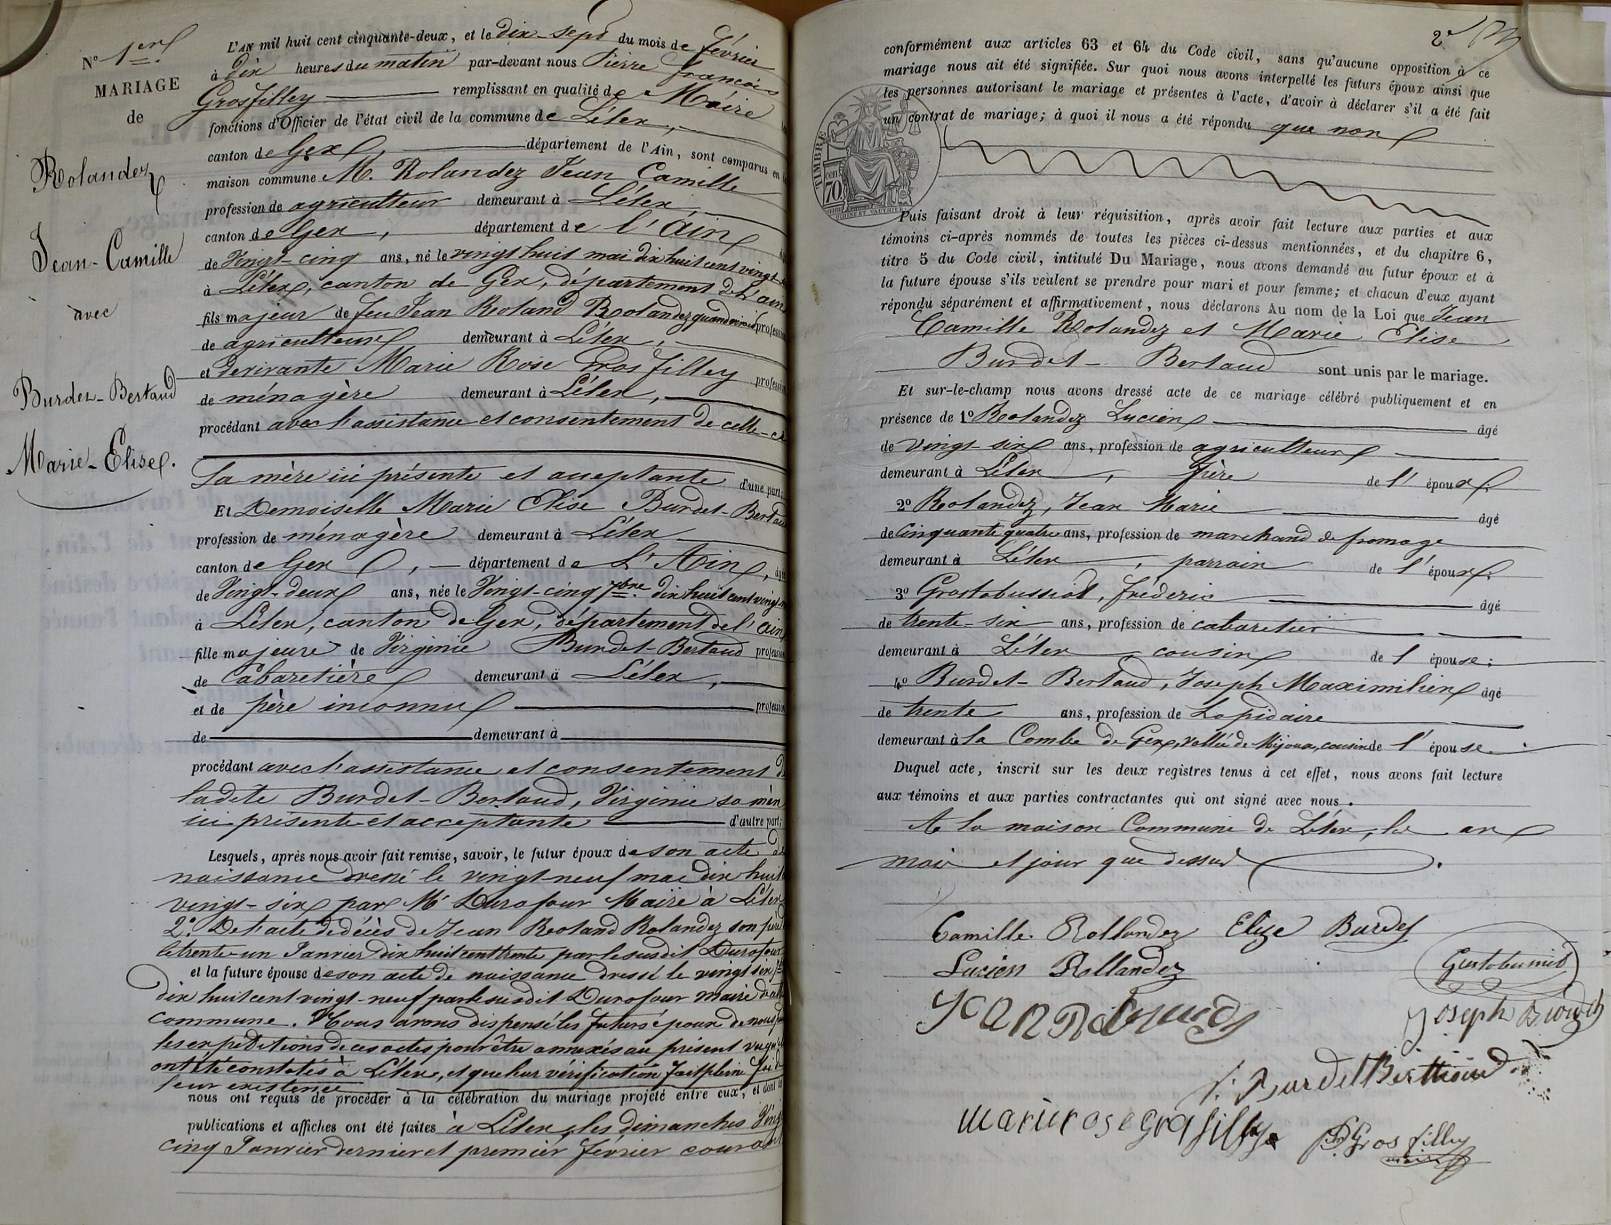 N° 1er
MARIAGE
de
Rolandez
Jean-Camille
avec
Burdet-Bertaud
Marie-Elise.
L'AN mil huit cent cinquante-deux, et le dix sept du mois de février
à dix heures du matin par-devant nous Pierre François
Grosfilley remplissant en qualité de Maire
fonctions d'Officier de l'état civil de la commune de Lélex,
canton de Gex, département de l'Ain, sont comparus en
maison commune M. Rolandez Jean Camille
profession de agriculteur demeurant à Lélex
canton de Gex, département de l'Ain
de Vingt-cinq ans, né le vingt huit mai dix huit cent vingt
à Lélex, canton de Gex, département de l'ain
fils majeur de feu Jean Roland Rolandez quand vivait profession
de agriculteur demeurant à Lélex,
et de vivante Marie Rose Grosfilley profession
de ménagère demeurant à Lélex,
procédant avec l'assistance et consentement de celle-ci
Sa mère ici présente et acceptante d'une part;
Et Demoiselle Marie Elise Burdet-Bertaud
profession de ménagère demeurant à Lélex
canton de Gex, département de L'Ain,
de Vingt-deux ans, née le Vingt-cinq 7bre dix huit cent vingt
à Lélex, canton de Gex, département de l'ain
fille majeure de Virginie Burdet-Bertaud profession
de Cabaretière demeurant à Lélex,
et de père inconnu profession
de demeurant à
procédant avec l'assistance et consentement de
ladite Burdet-Bertaud, Virginie sa mère
ici présente et acceptante d'autre part;
Lesquels, après nous avoir fait remise, savoir, le futur époux de son acte de
naissance dressé le vingt neuf mai dix huit
vingt-six par Mr Durafour Maire à Lélex
2° De l'acte de décès de Jean Roland Rolandez son père
le trente-un Janvier dix huit cent trente par le susdit Durafour
et la future épouse de son acte de naissance dressé le vingt six
dix huit cent vingt-neuf par le susdit Durafour maire
commune. Nous avons dispensé les futurs époux de nous
les expéditions de ces actes pour être annexés au présent vu que
ont été constatés à Lélex, et que leur vérification fait plein foi de
leur existence
nous ont requis de procéder à la célébration du mariage projeté entre eux, et dont les
publications et affiches ont été faites à Lélex, les dimanches Vingt
cinq Janvier dernier et premier février courant
2e
conformément aux articles 63 et 64 du Code civil, sans qu'aucune opposition à ce
mariage nous ait été signifiée. Sur quoi nous avons interpellé les futurs époux ainsi que
les personnes autorisant le mariage et présentes à l'acte, d'avoir à déclarer s'il a été fait
un contrat de mariage; à quoi il nous a été répondu que non
TIMBRE
70
Puis faisant droit à leur réquisition, après avoir fait lecture aux parties et aux
témoins ci-après nommés de toutes les pièces ci-dessus mentionnées, et du chapitre 6,
titre 5 du Code civil, intitulé Du Mariage, nous avons demandé au futur époux et à
la future épouse s'ils veulent se prendre pour mari et pour femme; et chacun d'eux ayant
répondu séparément et affirmativement, nous déclarons Au nom de la Loi que Jean
Camille Rolandez et Marie Elise
Burdet-Bertaud sont unis par le mariage.
Et sur-le-champ nous avons dressé acte de ce mariage célébré publiquement et en
présence de 1° Rolandez Lucien âgé
de vingt six ans, profession de agriculteur
demeurant à Lélex, frère de l'époux;
2° Rolandez, Jean Marie âgé
de Cinquante quatre ans, profession de marchand de fromage
demeurant à Lélex, parrain de l'époux;
3° Grostabussiat, fréderic âgé
de trente-six ans, profession de cabaretier
demeurant à Lélex, cousin de l'épouse;
4° Burdet-Bertaud, Joseph Maximilien âgé
de trente ans, profession de Lapidaire
demeurant à la Combe de Gex, vallée de Mijoux, cousin de l'épouse.
Duquel acte, inscrit sur les deux registres tenus à cet effet, nous avons fait lecture
aux témoins et aux parties contractantes qui ont signé avec nous.
A la maison Commune de Lélex, les an
mois et jour que dessus.
Camille Rollandez Elize Burdet
Lucien Rollandez
Joseph Burdet
marie rose Grosfilley
Grosfilley
maire